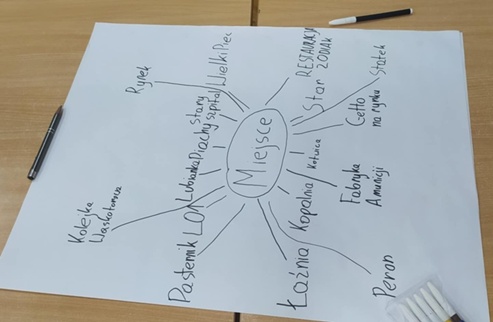 Rynek
Wielki Piec
Stary
szpital
Piachy
Lubianka
LOK
Pasternik
Kolejka
Wąskotorowa
Miejsce
RESTAURACJA
ZODIAK
Star
Statek
Getto
na rynku
Kotwica
Fabryka
Amunicji
Kopalnia
Łaźnia
Peron